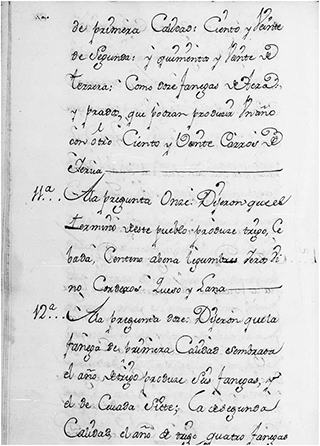 de primera Calidad: Ciento y Veinte
de Segunda: y quinientas y Veinte de
Terzera; Como doze fanegas de
y prados, que podran produzir Un año
con otro Ciento y Veinte Carros de
Yerva
11.a... Ala pregunta Onze: Dijeron que el
termino deste pueblo produze trigo, Ce
bada, Centeno abena legumbres
no Corderos Queso y Lana
12.a... Ala pregunta doze: Dijeron que la
fanega de primera Calidad sembrada
el año de trigo produze Seis fanegas, y
el de Cevada Siete; La de segunda
Calidad, el año de trigo quatro fanegas